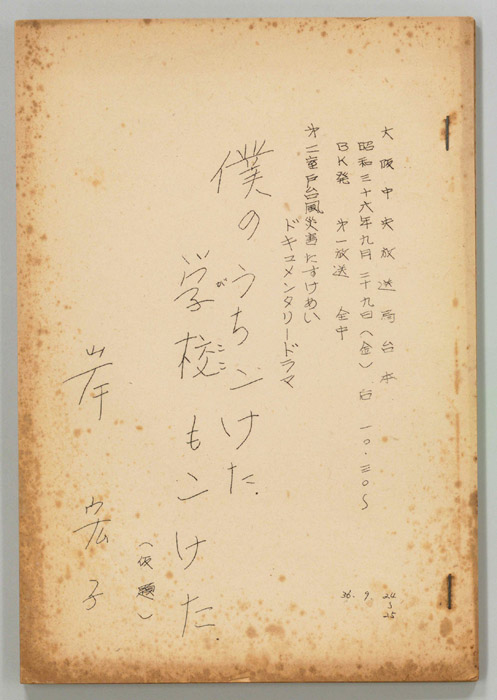 大阪中央放送局台本
昭和三十六年九月二十九日(金) 后 一〇・三〇〜
BK発 第一放送 全中
第二室戸台風災害たすけあい
ドキュメンタリードラマ
僕のうちこけた.
学校もこけた.
(仮題)
岸宏子
36. 9. 24〜25